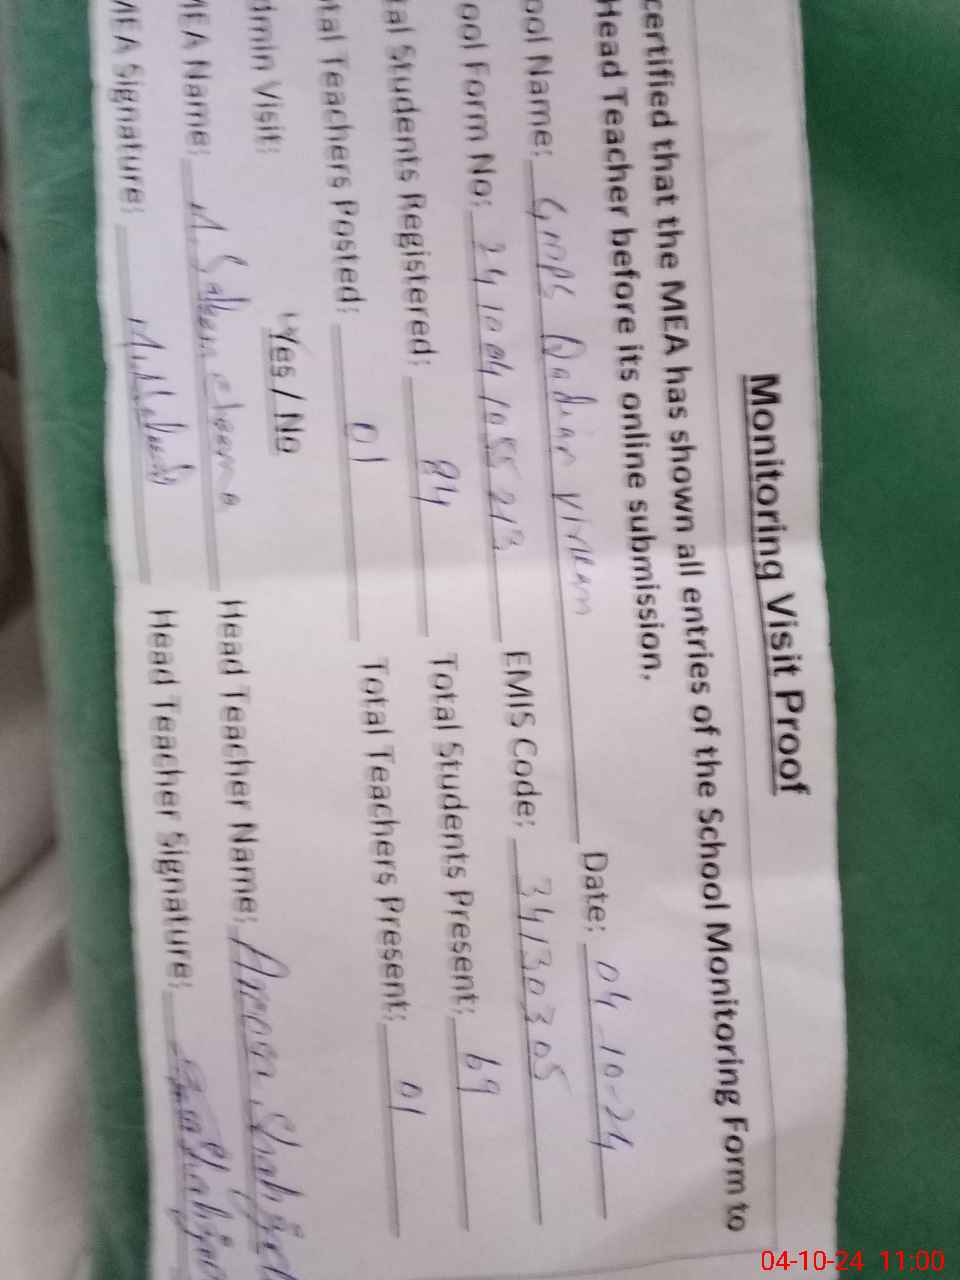 Monitoring Visit Proof
certified that the MEA has shown all entries of the School Monitoring Form to
Head Teacher before its online submission.
ool Name: GMPS Qadian virkan Date: 04-10-24
ool Form No: 24100410 213 EMIS Code: 34130305
tal Students Registered: 84 Total Students Present: 69
tal Teachers Posted: 01 Total Teachers Present: 01
dmin Visit: Yes / No
MEA Name: M. Saleem cheema Head Teacher Name: Shah
MEA Signature: Head Teacher Signature:
04-10-24 11:00